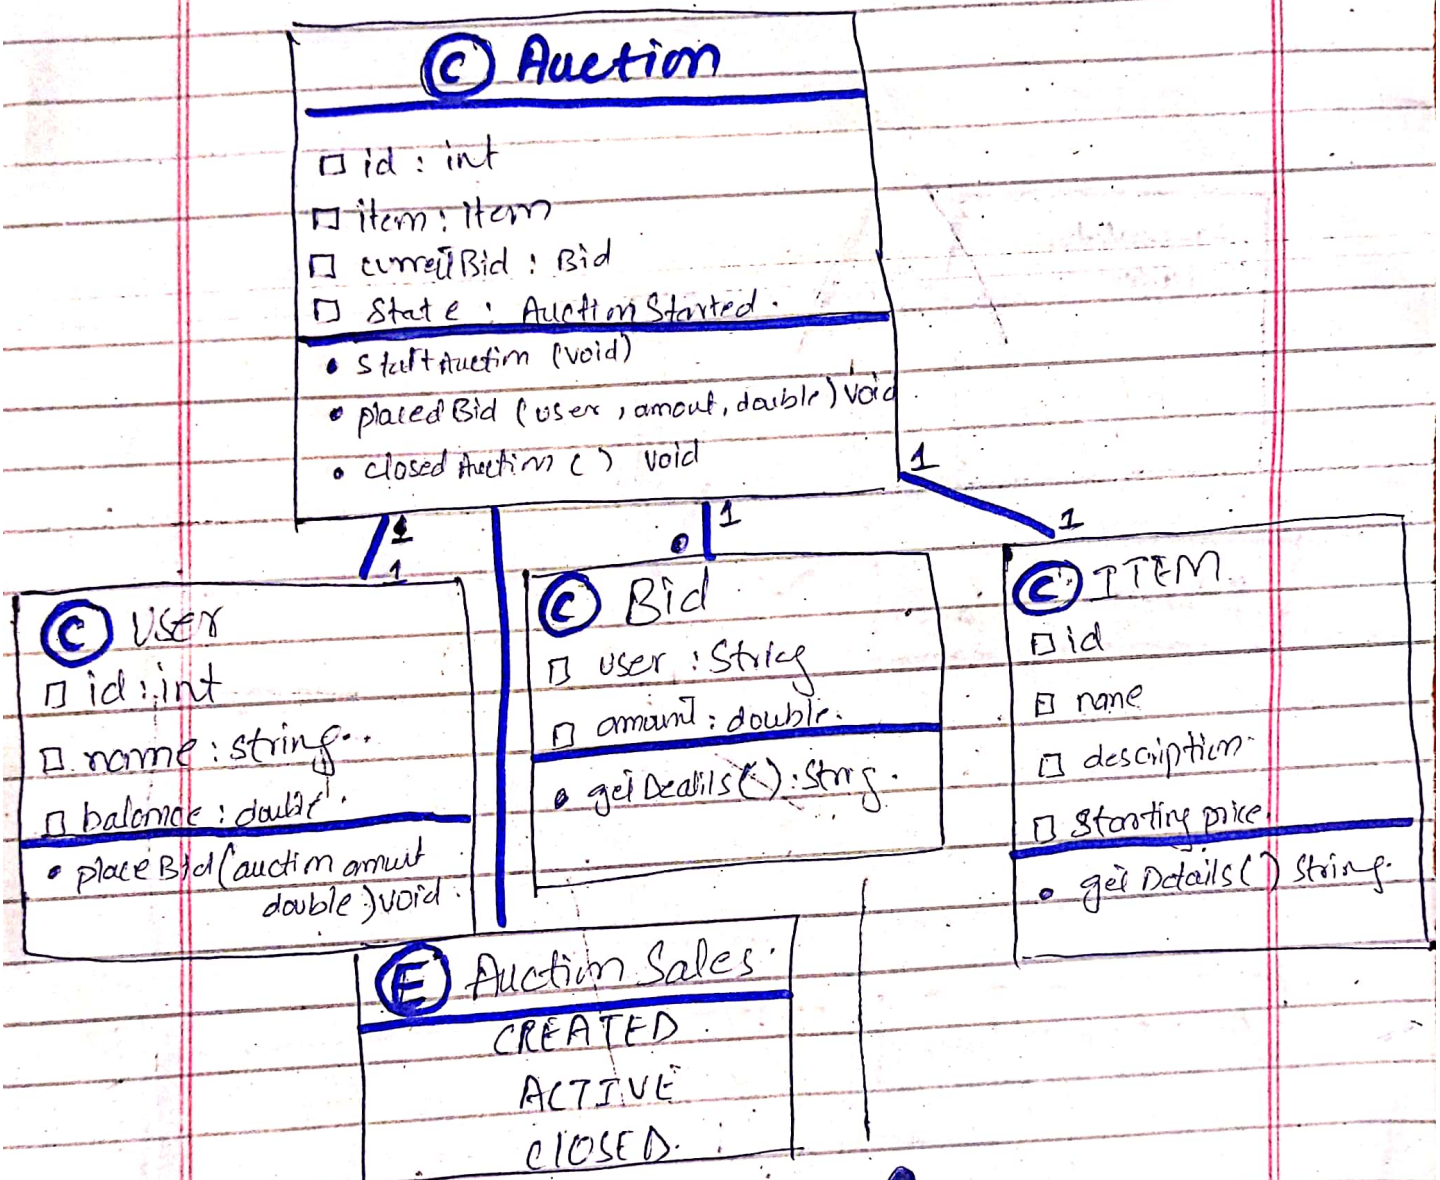 C Auction
id : int
item : Item
current Bid : Bid
State : Auction Started.
• Start Auction (void)
• placed Bid (user , amout, double) void
• closed Auction ( ) void
1
1
1
1
1
1
C User
id : int
name : string..
balance : double.
• place Bid (auction amuit
double) void.
C Bid
user : String
amount : double.
• get Deatils ( ) : Strng.
C ITEM
id
name
description.
Starting price.
• get Details ( ) String.
E Auction Sales.
CREATED.
ACTIVE
CLOSED.